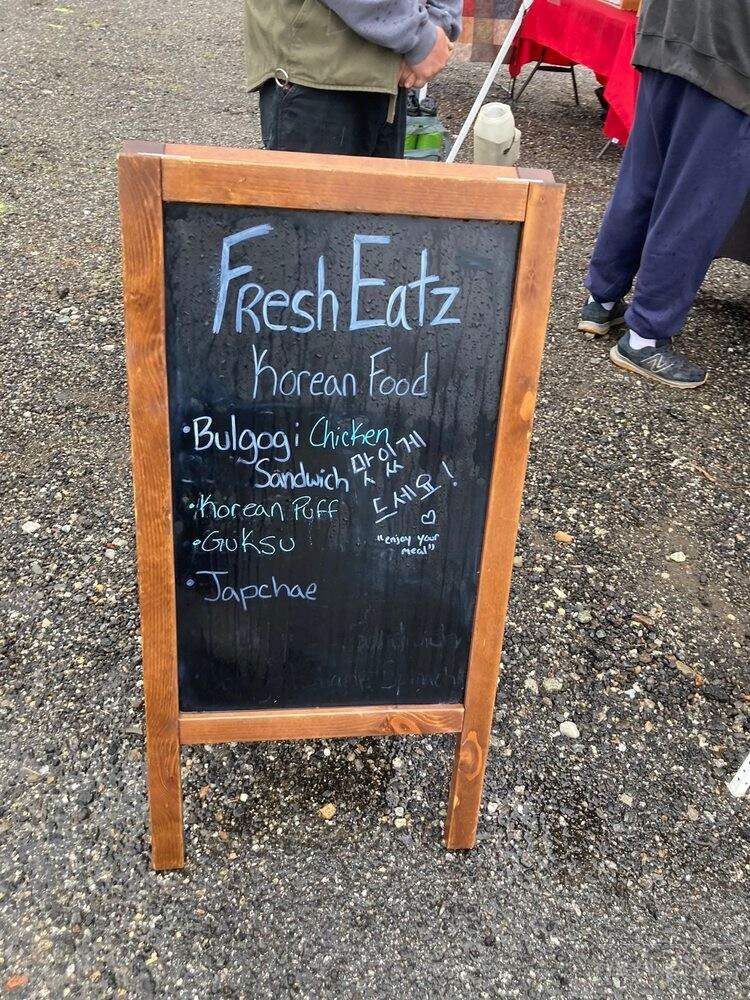 Fresh Eatz
Korean Food
•Bulgogi Chicken
Sandwich
맛있게
드세요!
♡
"enjoy your
meal"
•Korean Puff
•Guksu
•Japchae